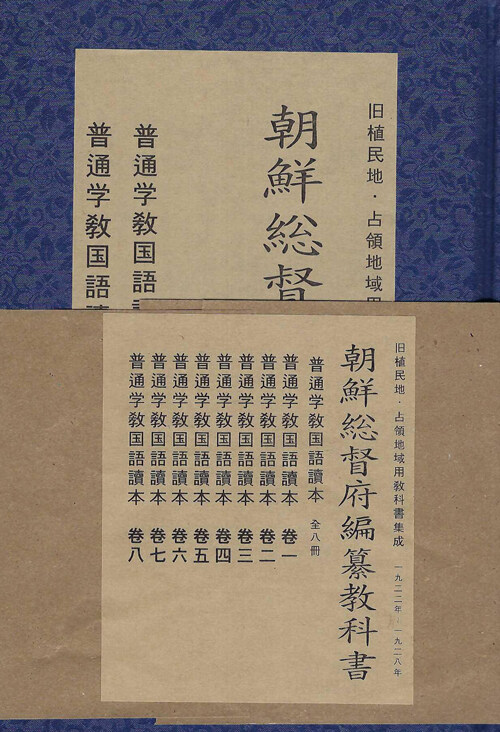 旧植民地・占領地域用
朝鮮総督
普通学教国語
普通学教国語
旧植民地・占領地域用教科書集成 一九二二年-一九二八年
朝鮮総督府編纂教科書
普通学教国語讀本 全八冊
普通学教国語讀本 卷一
普通学教国語讀本 卷二
普通学教国語讀本 卷三
普通学教国語讀本 卷四
普通学教国語讀本 卷五
普通学教国語讀本 卷六
普通学教国語讀本 卷七
普通学教国語讀本 卷八